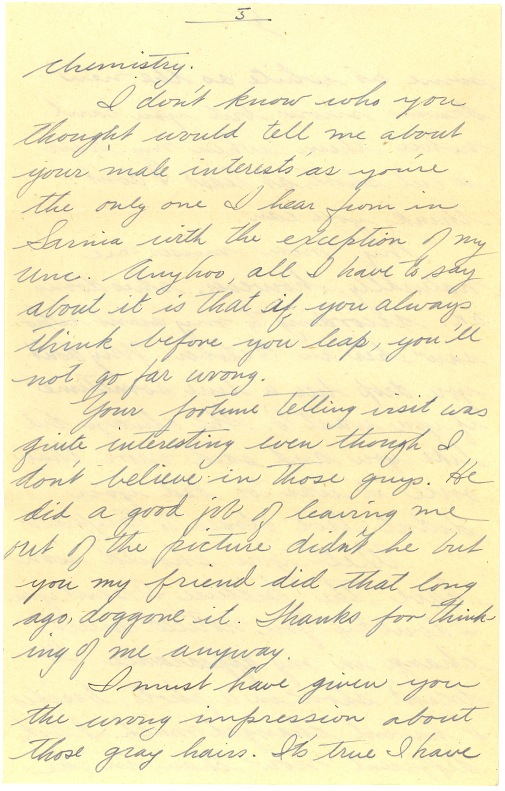 5
chemistry.
I don't know who you
thought would tell me about
your male interests as you're
the only one I hear from in
Sarnia with the exception of my
unc. Anyhoo, all I have to say
about it is that if you always
think before you leap, you'll
not go far wrong.
Your fortune telling visit was
quite interesting even though I
don't believe in those guys. He
did a good job of leaving me
out of the picture didn't he but
you my friend did that long
ago, doggone it. Thanks for think-
ing of me anyway.
I must have given you
the wrong impression about
those gray hairs. It's true I have